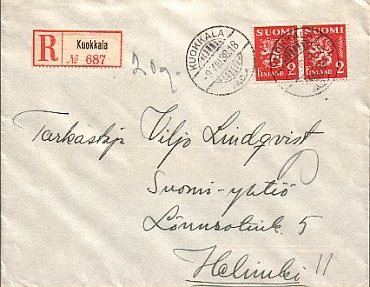 R Kuokkala
№ 687
20g.
KUOKKALA
SUOMI SUOMI
FINLAND 2 FINLAND 2
Tarkastaja Viljo Lindqvist
Suomi-yhtiö
Lönnrotink. 5
Helsinki